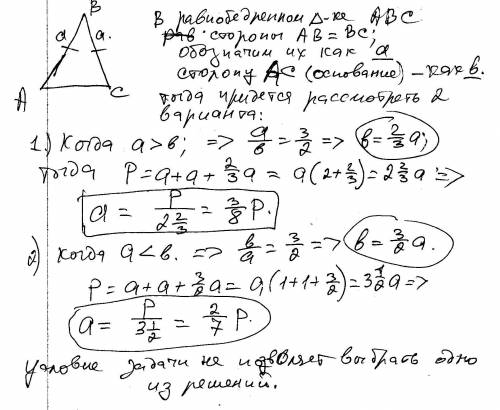 B
a a
A C
В равнобедренном Δ-ке ABC
стороны AB = BC;
обозначим их как a
сторону AC (основание) – как b.
тогда придется рассмотреть 2
варианта:
1.) Когда a > b; => a/b = 3/2 => b = 2/3 a;
тогда P = a + a + 2/3 a = a(2 + 2/3) = 2 2/3 a =>
a = P / 2 2/3 = 3/8 P.
2) Когда a < b. => b/a = 3/2 => b = 3/2 a.
P = a + a + 3/2 a = a(1 + 1 + 3/2) = 3 1/2 a =>
a = P / 3 1/2 = 2/7 P.
условие задачи не позволяет выбрать одно
из решений.